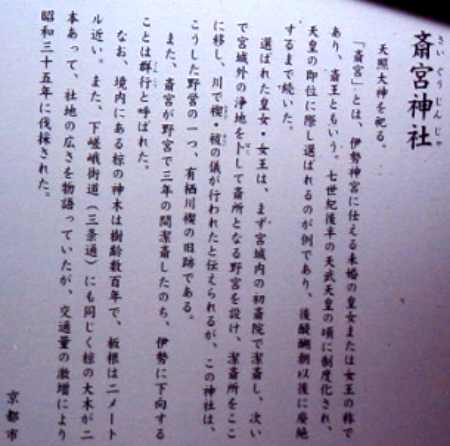 斎宮神社
さいぐうじんじゃ
天照大神を祀る。
「斎宮」とは、伊勢神宮に仕える未婚の皇女または女王の称で
あり、斎王ともいう。七世紀後半の天武天皇の頃に制度化され、
天皇の即位に際し選ばれるのが例であり、後醍醐朝以後に廃絶
するまで続いた。
選ばれた皇女・女王は、まず宮城内の初斎院で潔斎し、次い
で宮城外の浄地を卜して斎所となる野宮を設け、潔斎所をここ
に移し、川で禊・祓の儀が行われたと伝えられるが、この神社は、
こうした野宮の一つ、有栖川禊の旧跡である。
また、斎宮が野宮で三年の間潔斎したのち、伊勢に下向する
ことは群行と呼ばれた。
なお、境内にある椋の神木は樹齢数百年で、板根は二メート
ル近い。また、下嵯峨街道（三条通）にも同じく椋の大木が二
本あって、社地の広さを物語っていたが、交通量の激増により
昭和三十五年に伐採された。
京都市